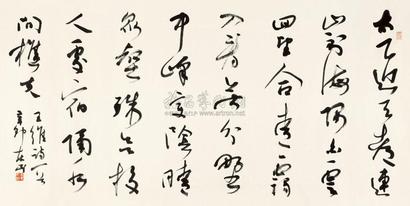 太乙近天都連
山到海隅白雲
回望合青靄
入看無分野
中峰變陰晴
衆壑殊欲投
人處宿隔水
問樵夫
王維詩一首
辛卯